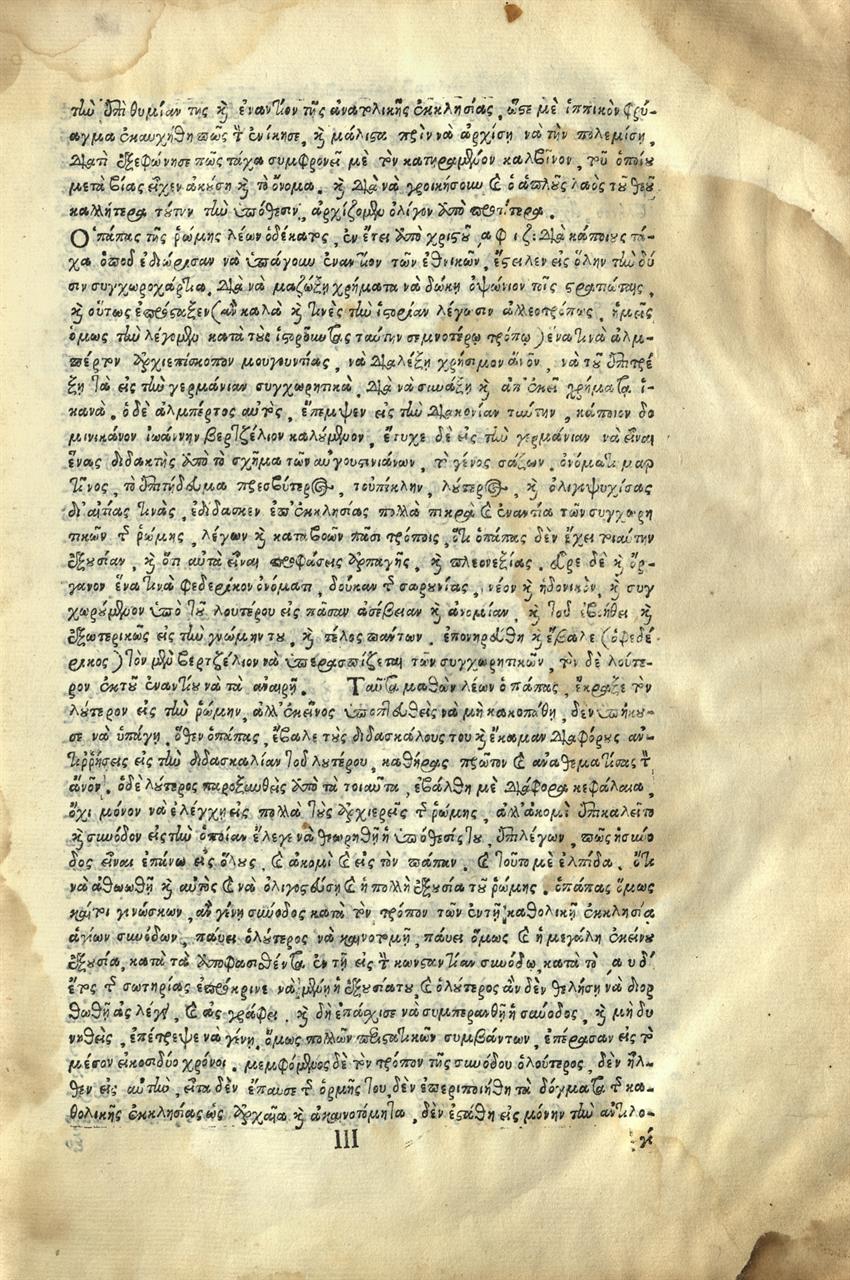 τὴν ἐπιθυμίαν της καὶ ἐναντίον τῆς ἀνατολικῆς ἐκκλησίας, ὥστε μὲ ἱππικὸν φρύ-
αγμα ἐκαυχήθη πῶς τ ἐνίκησε, καὶ μάλιστα πρὶν νὰ ἀρχίσῃ νὰ τὴν πολεμίσῃ,
διατὶ ἐξεφώνησε πῶς τάχα συμφρονεῖ μὲ τὸν κατηραμένον καλβῖνον, τοῦ ὁποίου
μετὰ βίας εἶχεν ἀκούσῃ καὶ τὸ ὄνομα. καὶ διὰ νὰ γροικήσουν καὶ ὁ ἁπλοῦς λαὸς τοῦ θεοῦ
καλλήτερα τούτην τὴν ὑπόθεσιν, ἀρχίζομεν ὀλίγον ἀπὸ προτίτερα.
Ὁ πάπας τῆς ῥώμης λέων ὁ δέκατος, ἐν ἔτει ἀπὸ χριστοῦ ͵αφιζ: διὰ κάποιους τά-
χα ὁποῦ ἐδιώρισαν νὰ ὑπάγουν ἐναντίον τῶν ἐθνικῶν, ἔστειλεν εἰς ὅλην τὴν δύ
σιν συγχωροχάρτια, διὰ νὰ μαζώξῃ χρήματα νὰ δώκῃ ὀψώνιον τοῖς στρατιώταις,
καὶ οὕτως ἐπρόσταξεν (ἂν καλὰ καὶ τινὲς τὴν ἱστορίαν λέγουσιν ἀλλεοτρόπως, ἡμεῖς
ὅμως τὴν λέγομεν κατὰ τοὺς ἱστοροῦντας ταύτην σεμνοτέρῳ τρόπῳ) ἕνα τινὰ ἀλμ-
πέρτον ἀρχιεπίσκοπον μουγουντίας, νὰ διαλέξῃ χρήσιμον ἄνον, νὰ τοῦ ἐπιτρέ
ξῃ τὰ εἰς τὴν γερμάνιαν συγχωρητικὰ, διὰ νὰ συνάξῃ καὶ ἀπ' ἐκεῖ χρήματα ἱ-
κανά. ὁ δὲ ἀλμπέρτος αὐτὸς, ἔπεμψεν εἰς τὴν διακονίαν ταύτην, κάποιον δο
μινικάνον ἰωάννην βερτζέλιον καλούμενον, ἔτυχε δὲ εἰς τὴν γερμάνιαν νὰ εἶναι
ἕνας διδακτὴς ἀπὸ τὸ σχῆμα τῶν αὐγουστινιάνων, τὸ γένος σάξων, ὀνόματι μαρ
τῖνος, τὸ ἐπιτήδευμα πρεσβύτερος, τοὐπίκλην, λύτερος, καὶ ὀλιγοψυχίσας
δι' αἰτίας τινὰς, ἐδίδασκεν ἐπ' ἐκκλησίας πολλὰ πικρὰ καὶ ἐναντία τῶν συγχωρη
τικῶν τῆς ῥώμης, λέγων καὶ καταβοῶν πᾶσι τρόποις, ὅτι ὁ πάπας δὲν ἔχει τοιαύτην
ἐξουσίαν, καὶ ὅτι αὐτὰ εἶναι προφάσεις ἁρπαγῆς, καὶ πλεονεξίας. εὗρε δὲ καὶ ὄρ-
γανον ἕνα τινὰ φεδερῖκον ὀνόματι, δούκαν τῆς σαξωνίας, νέον καὶ ἡδονικὸν, καὶ συγ
χωρούμενον ὑπὸ τοῦ λουτέρου εἰς πᾶσαν ἀσέβειαν καὶ ἀνομίαν, καὶ τοῦ ἐβοήθει καὶ
ἐξωτερικῶς εἰς τὴν γνώμην του, καὶ τέλος πάντων, ἐπονηρεύθη καὶ ἔβαλε (ὁ φεδέ
ρικος) τὸν μὲν βερτζέλιον νὰ ὑπερασπίζεται τῶν συγχωρητικῶν, τὸν δὲ λούτε-
ρον ἐκ τοῦ ἐναντίου νὰ τὰ ἀναιρῇ. Ταῦτα μαθὼν λέων ὁ πάπας, ἔκραξε τὸν
λύτερον εἰς τὴν ῥώμην, ἀλλ' ἐκεῖνος ὑποπτευθεὶς νὰ μὴ κακοπάθῃ, δὲν ὑπήκου-
σε νὰ ὑπάγῃ, ὅθεν ὁ πάπας, ἔβαλε τοὺς διδασκάλους του καὶ ἔκαμαν διαφόρους ἀν-
τιῤῥήσεις εἰς τὴν διδασκαλίαν τοῦ λυτέρου, καθῄρας πρῶτον καὶ ἀναθεματίσας τ
ἄνον. ὁ δὲ λύτερος παροξυνθεὶς ἀπὸ τὰ τοιαῦτα, ἐβάλθη μὲ διάφορα κεφάλαια,
ὄχι μόνον νὰ ἐλέγχῃ εἰς πολλὰ τοὺς ἀρχιερεῖς τῆς ῥώμης, ἀλλ' ἀκομὶ ἐπικαλεῖτο
καὶ σύνοδον εἰς τὴν ὁποίαν ἔλεγε νὰ θεωρηθῇ ἡ ὑπόθεσίς του, ἐπιλέγων, πῶς ἡ σύνο
δος εἶναι ἐπάνω εἰς ὅλους, καὶ ἀκομὶ καὶ εἰς τὸν πάπαν. καὶ τοῦτο μὲ ἐλπίδα, ὅτι
νὰ ἀθωωθῇ καὶ αὐτὸς καὶ νὰ ὀλιγοστεύσῃ καὶ ἡ πολλὴ ἐξουσία τοῦ ῥώμης. ὁ πάπας ὅμως
καίτοι γινώσκων, ἂν γένῃ σύνοδος κατὰ τὸν τρόπον τῶν ἐν τῇ καθολικῇ ἐκκλησίᾳ
ἁγίων συνόδων, παύει ὁ λύτερος νὰ καινοτομῇ, παύει ὅμως καὶ ἡ μεγάλη ἐκείνου
ἐξουσία, κατὰ τὰ ἀποφασισθέντα ἐν τῇ εἰς τ κωνσταντίαν συνόδῳ, κατὰ τὸ ͵αυδί
ἔτος τῆς σωτηρίας ἐπρόκρινε νὰ μένῃ ἡ ἐξουσία του, καὶ ὁ λύτερος ἂν δὲν θελήσῃ νὰ διορ
θωθῇ ἂς λέγῃ, καὶ ἂς γράφει. καὶ δὴ ἐπάσχισε νὰ συμπερανθῇ ἡ σύνοδος, καὶ μὴ δυ
νηθεὶς, ἐπέτρεψε νὰ γένῃ, ὅμως πολλῶν περιστατικῶν συμβάντων, ἐπέρασαν εἰς τὸ
μέσον εἰκοσιδύο χρόνοι. μεμφόμενος δὲ τὸν τρόπον τῆς συνόδου ὁ λούτερος, δὲν ἦλ-
θεν εἰς αὐτὴν, εἶτα δὲν ἔπαυσε τῆς ὁρμῆς του, δὲν ἐπεριποιήθη τὰ δόγματα τῆς κα-
θολικῆς ἐκκλησίας ὡς ἀρχαῖα καὶ ἀκαινοτόμητα, δὲν ἐστάθη εἰς μόνην τὴν ἀντιλο-
III γί